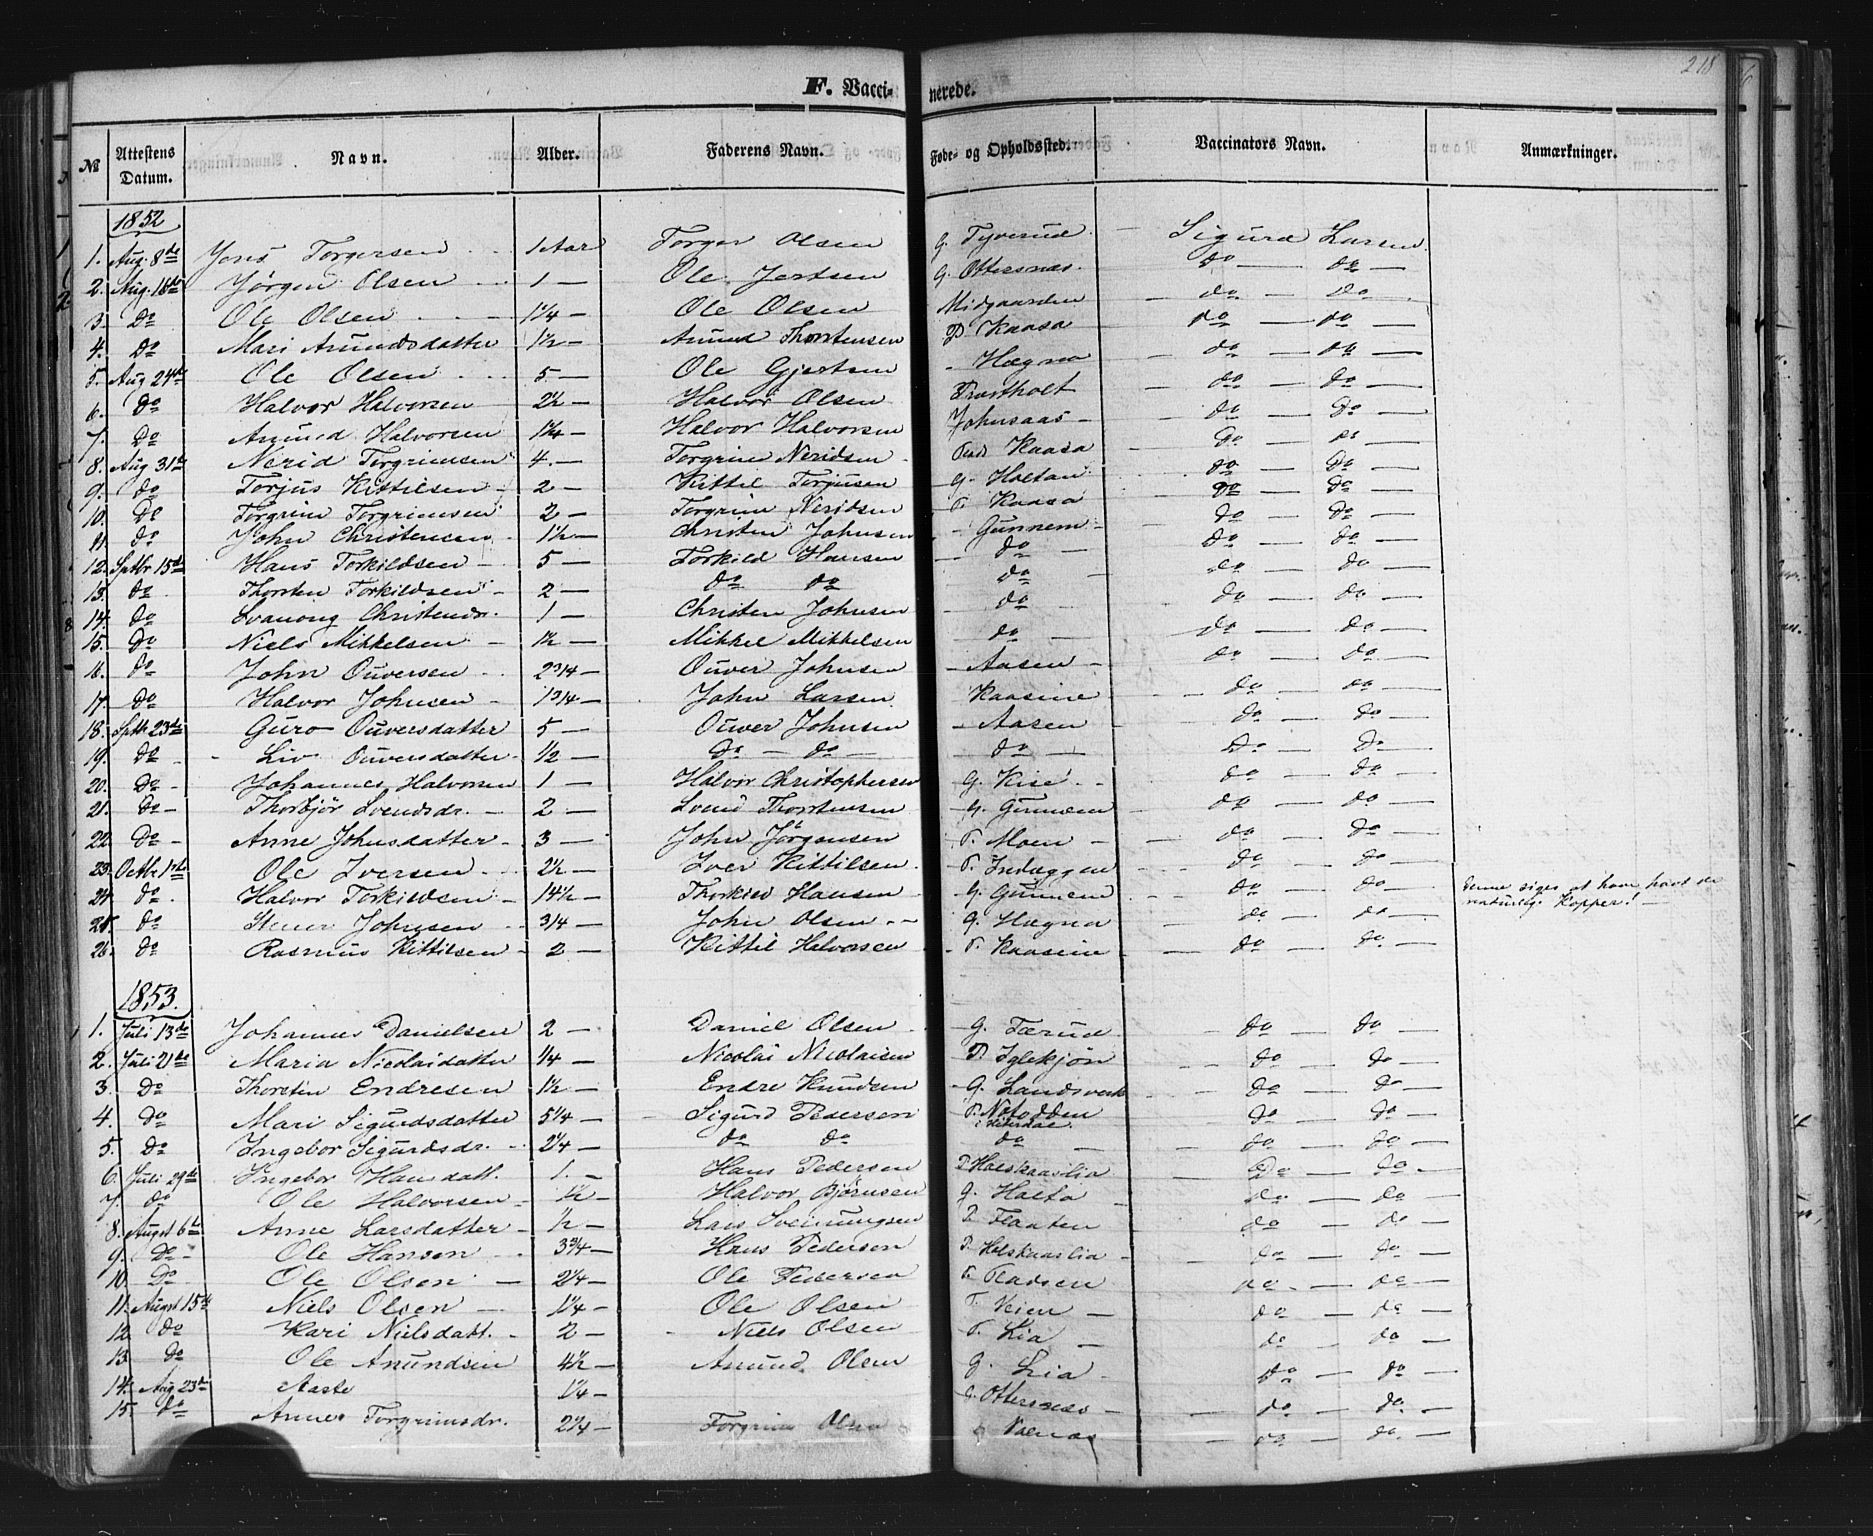 218
F. Vaccinerede.
№ Attestens Datum. Navn. Alder. Faderens Navn. Føde- og Opholdssted. Vaccinators Navn. Anmærkninger.
1852
1. Aug. 8de Jens Torgersen 1 Aar Torger Olsen G. Tyverud Sigurd Larsen
2. Aug. 16de Jørgen Olsen 1 — Ole Jertsen G. Ottersnæs do — do —
3. Do Ole Olsen 1¼ — Ole Olsen Midgaarden — do — Do —
4. Do Mari Anundsdatter 1½ — Anund Thorstensen P. Kaasa — do — do —
5. Aug 24de Ole Olsen 5 — Ole Gjertsen — Hægna — do — do —
6. Do Halvor Halvorsen 2½ — Halvor Olsen — do — Do —
7. Do Anund Halvorsen 1¼ — Halvor Halvorsen Johnsaas — do — Do —
8. Aug 31te Nerid Torgrimsen 4. — Torgrim Neridsen Kaasa Do — do —
9. do Torjus Kittilsen 2 — Kittil Torjusen G. Holtan do — Do —
10. Do Torgrim Torgrimsen 2 — Torgrim Neridsen P. Kaasa Do — Do —
11. do John Christensen 1½ — Christen Johnsen — Gunnem — Do — Do —
12. Sptbr 15de Hans Torkildsen 5 — Torkild Hansen — do — Do — do —
13. do Thorsten Torkildsen 2 — do do do — do — do —
14. Do Svanaug Christensdr. 1 — Christen Johnsen — do do — do —
15. Do Niels Mikkelsen — 1½ — Mikkel Mikkelsen — do — do — do —
16. do John Ouversen 2¾ — Ouver Johnsen — Aasen — do — do —
17. Do Halvor Johnsen 1¾ — John Larsen Kaasine — do — do —
18. Sptbr 23de Guro Ouversdatter 5 — Ouver Johnsen — Aasen — do — do —
19. Do Liv Ouversdatter ½ — Do — do — — do — Do — Do —
20. Do Johannes Halvorsen 1 — Halvor Christophersen G. Kise — do — do —
21. Do — Thorbjør Svendsdr. — 2 — Svend Thorstensen G. Gunnem do — do —
22. Do — Anne Johnsdatter — 3 — John Jørgensen P. Moen — do — Do —
23. Octbr 1ste Ole Iversen 2½ — Iver Kittilsen P. do — do —
24. do Halvor Torkildsen 14½ — Thorkild Hansen G. Gunnem do — do — Denne siges at have havt de naturlig. Kopper! —
25. do Johnsen ¾ — John Olsen — G. Hægna do — do —
26. do Rasmus Kittilsen — 2 — Kittil Halvorsen — P. Kaasine — do — do —
1853.
1. Juli 13de Johannes Danielsen 2 — Daniel Olsen — G. Tærud — do — do —
2. Juli 21de Maria Nicolaidatter ¼ — Nicolai Nicolaisen P. Iglekjøn — do — do —
3. Do Thorstein Endresen 1½ — Endre Knudsen — G. Landsverk Do — Do —
4. Do Mari Sigurdsdatter 5¼ — Sigurd Pedersen P. Notodden i Hiterdal. — Do — Do —
5. Do Ingebor Sigurdsdr. 2¼ — do do do — do — do —
6. Juli 29de Ingebor Hansdatt. 1. — Hans Pedersen P. Holskaaslia — Do — do —
7. do Ole Halvorsen — 1½ — Halvor Bjørnsen G. Holta — do — do —
8. Augst 6te Anne Larsdatter — ½ — Lars Sveinungsen P. Flaaten do — do —
9. Do Ole Hansen 3¾ — Hans Pedersen P. Holskaaslia — do — do —
10. Do Ole Olsen — 2¼ — Ole Pedersen do — do —
11. Augst 15de Niels Olsen — 1¼ — Ole Olsen P. Veien — do — do —
12. Do Kari Nielsdatt. — 2 — Niels Olsen P. Lia — do — do —
13. do Ole Anundsen 4½ — Anund Olsen G. Lia — do — do —
14. Aug 23de Aaste 1¼ — G. Ottersnæs — do — do —
15. do Anne Torgrimsdr. 2¼ — Torgrim Olsen — do — do —